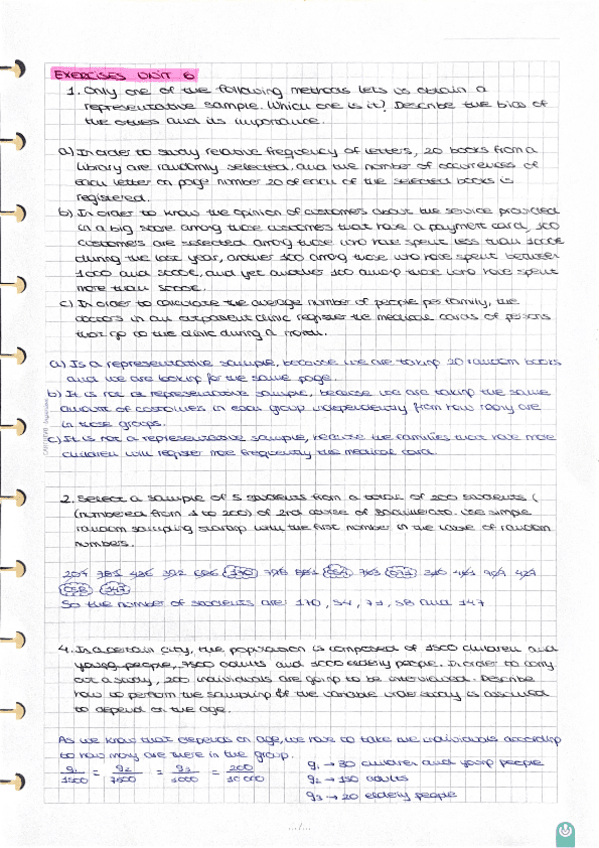 EXERCISES UNIT 6
1. Only one of the following methods lets us obtain a
representative sample. Which one is it? Describe the bias of
the others and its importance.
a) In order to study relative frequency of letters, 20 books from a
library are randomly selected, and the number of occurrences of
each letter on page number 20 of each of the selected books is
registered.
b) In order to know the opinion of customers about the service provided
in a big store among those customers that have a payment card, 100
customers are selected among those who have spent less than 1000€
during the last year, another 100 among those who have spent between
1000 and 3000€, and yet another 100 among those who have spent
more than 3000€.
c) In order to calculate the average number of people per family, the
doctors in an outpatient clinic register the medical cards of persons
that go to the clinic during a month.
a) Is a representative sample, because we are taking 20 random books
and we are looking for the same page.
b) It is not a representative sample, because we are taking the same
amount of costumers in each group independently from how many are
in those groups.
c) It is not a representative sample, because the families that have more
children will register more frequently the medical card.
2. Select a sample of 5 students from a total of 200 students (
(numbered from 1 to 200) of 2nd course of Bachillerato. Use simple
random sampling starting with the first number in the table of random
numbers.
So the number of students are: 170, 54, 73, 58 and 147
4. In a certain city, the population is composed of 1500 children and
young people, 7500 adults and 1000 elderly people. In order to carry
out a study, 200 individuals are going to be interviewed. Describe
how to perform the sampling if the variable under study is assumed
to depend on the age.
As we know that depends on age, we have to take the individuals according
to how many are there in the group.
g1/1500 = g2/7500 = g3/1000 = 200/10000
g1 → 30 children and young people
g2 → 150 adults
g3 → 20 elderly people